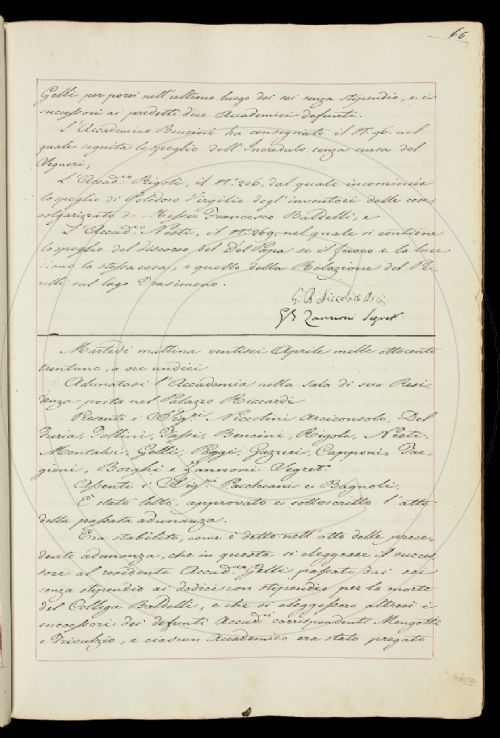 66
Gelli per porsi nell'ultimo luogo dei sei senza stipendio, e i
successori ai predetti dece Accademici defunti.
L'Accademico Bencini ha consegnato il N.º 96. nel
quale seguita lo spoglio dell'Incredulo senza scusa del
Segneri,
L'Accad.co Rigoli, il N.º 206, dal quale incomincia
lo spoglio di Polidoro Virgilio degl'inventori delle cose
volgarizzato da Messer Francesco Baldelli, e
L'Accad.co Nesti, il N.º 269, nel quale si contiene
lo spoglio del discorso del Del Papa se il fuoco e la luce
siano la stessa cosa, e quello della Relazione del Pe
relli sul lago Trasimeno.
G. B. Niccolini Arc.
G B Zannoni Segret.º
Martedì mattina ventisei Aprile mille ottocento
trentuno, a ore undici
Adunatasi l'Accademia nella sala di sua Resi
denza posta nel Palazzo Riccardi
Presenti i Sig.ri Niccolini Arciconsolo, Del
Furia, Follini, Tassi, Bencini, Rigoli, Nesti,
Montalvi, Gelli, Poggi, Gazzeri, Capponi, Tar
gioni, Borghi e Zannoni Segret.º
Assenti i Sig.ri Pacchiani e Bagnoli.
È stato letto, approvato e sottoscritto l'atto
della passata adunanza.
Era stabilito, come è detto nell'atto della prece
dente adunanza, che in questa si eleggesse il succes
sore al residente Accad.co Gelli passato dai sei
senza stipendio ai dodici con stipendio per la morte
del Collega Baldelli, e che si eleggessero altresì i
successori dei defunti Accad.ci corrispondenti Mengotti
e Trivulzio, e ciascun Accademico era stato pregato